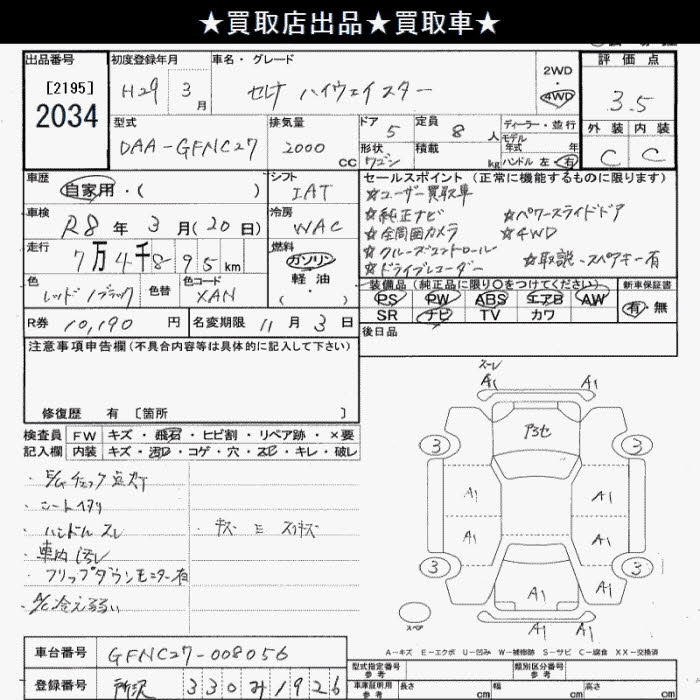 ★買取店出品★買取車★
出品番号 初度登録年月 車名・グレード 評価点
[2195]
2034
H29 3月 セレナ ハイウェイスター 2WD ・ 4WD 3.5
型式 排気量 ドア 5 定員 8 人 ディーラー・並行 外装 内装
モデル年式 年
DAA-GFNC27 2000 cc 形状 ワゴン 積載 kg ハンドル 左・右 C C
車歴 自家用・( ) シフト IAT
セールスポイント (正常に機能するものに限ります)
☆ユーザー買取車
☆純正ナビ ☆パワースライドドア
☆全周囲カメラ ☆4WD
☆クルーズコントロール ☆取説・スペアキー有
☆ドライブレコーダー
車検 R8 年 3 月(20 日) 冷房 WAC
走行 7万4千895km 燃料 ガソリン・軽油・( )
色 レッド/ブラック 色替 色コード XAN
装備品 (純正品に限り○をつけてください) 新車保証書
PS PW ABS エアB AW 有・無
SR ナビ TV カワ
R券 10,190 円 名変期限 11 月 3 日
後日品
注意事項申告欄(不具合内容等は具体的に記入して下さい)
修復歴 有 [箇所 ]
検査員記入欄 FW キズ・飛石・ヒビ割・リペア跡・×要
内装 キズ・汚れ・コゲ・穴・スレ・キレ・破レ
・E/Gチェック点灯
・シートヘタリ
・ハンドルスレ ・キズ ミ スリキズ
・車内汚レ
・フリップダウンモニター有
・A/C冷え弱い
スレ
A1 A1
アタセ
3 3
A1 A1
A1 A1
3 3
A1 A1
A1 A1
スペア
A-キズ E-エクボ U-凹み W-補修跡 S-サビ C-腐食 XX-交換済
車台番号 GFNC27-008056
登録番号 所沢 330 み 1926
型式指定番号 参考 類別区分番号 参考
車庫証明用 参考 長さ cm 幅 cm 高さ cm